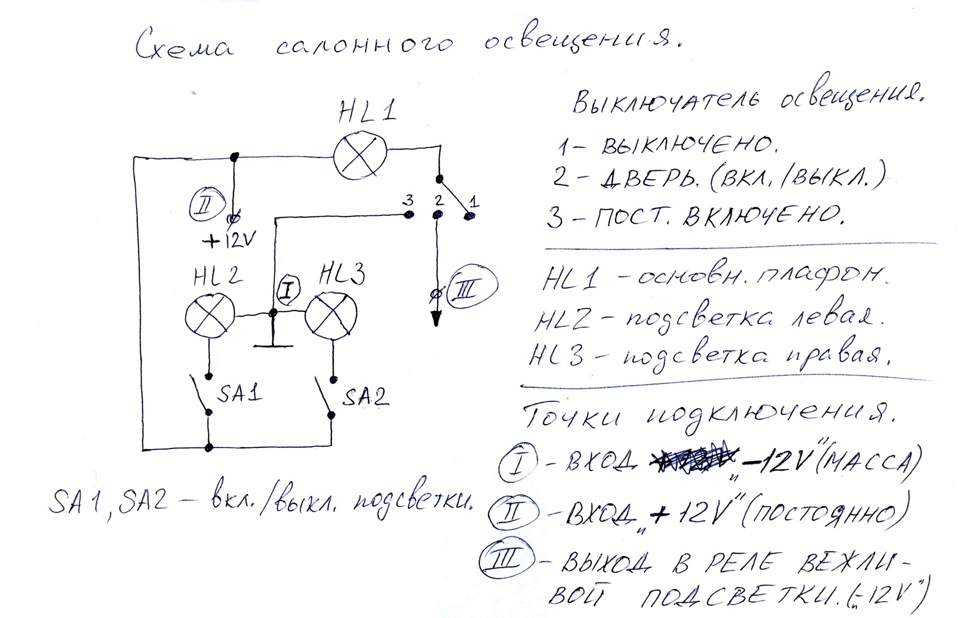 Схема салонного освещения.
HL1
II
+12V
3 2 1
HL2
I
HL3
III
SA1
SA2
SA1, SA2 – вкл./выкл. подсветки.
Выключатель освещения.
1– ВЫКЛЮЧЕНО.
2 – ДВЕРЬ. (ВКЛ./ВЫКЛ.)
3 – ПОСТ. ВКЛЮЧЕНО.
HL1 – основн. плафон.
HL2 – подсветка левая.
HL3 – подсветка правая.
Точки подключения.
I – ВХОД „–12V“ (МАССА)
II – ВХОД „+12V“ (ПОСТОЯННО)
III – ВЫХОД В РЕЛЕ ВЕЖЛИ-
ВОЙ ПОДСВЕТКИ. („–12V“)